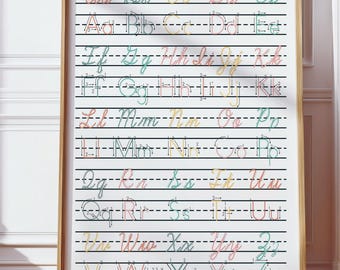 Aa Bb Cc Dd Ee
Ff Gg Hh Ii Jj Kk
Ff Gg Hh Ii Jj Kk
Ll Mm Nn Oo Pp
Ll Mm Nn Oo Pp
Qq Rr Ss Tt Uu
Qq Rr Ss Tt Uu
Vv Ww Xx Yy Zz
Vv Ww Xx Yy Zz